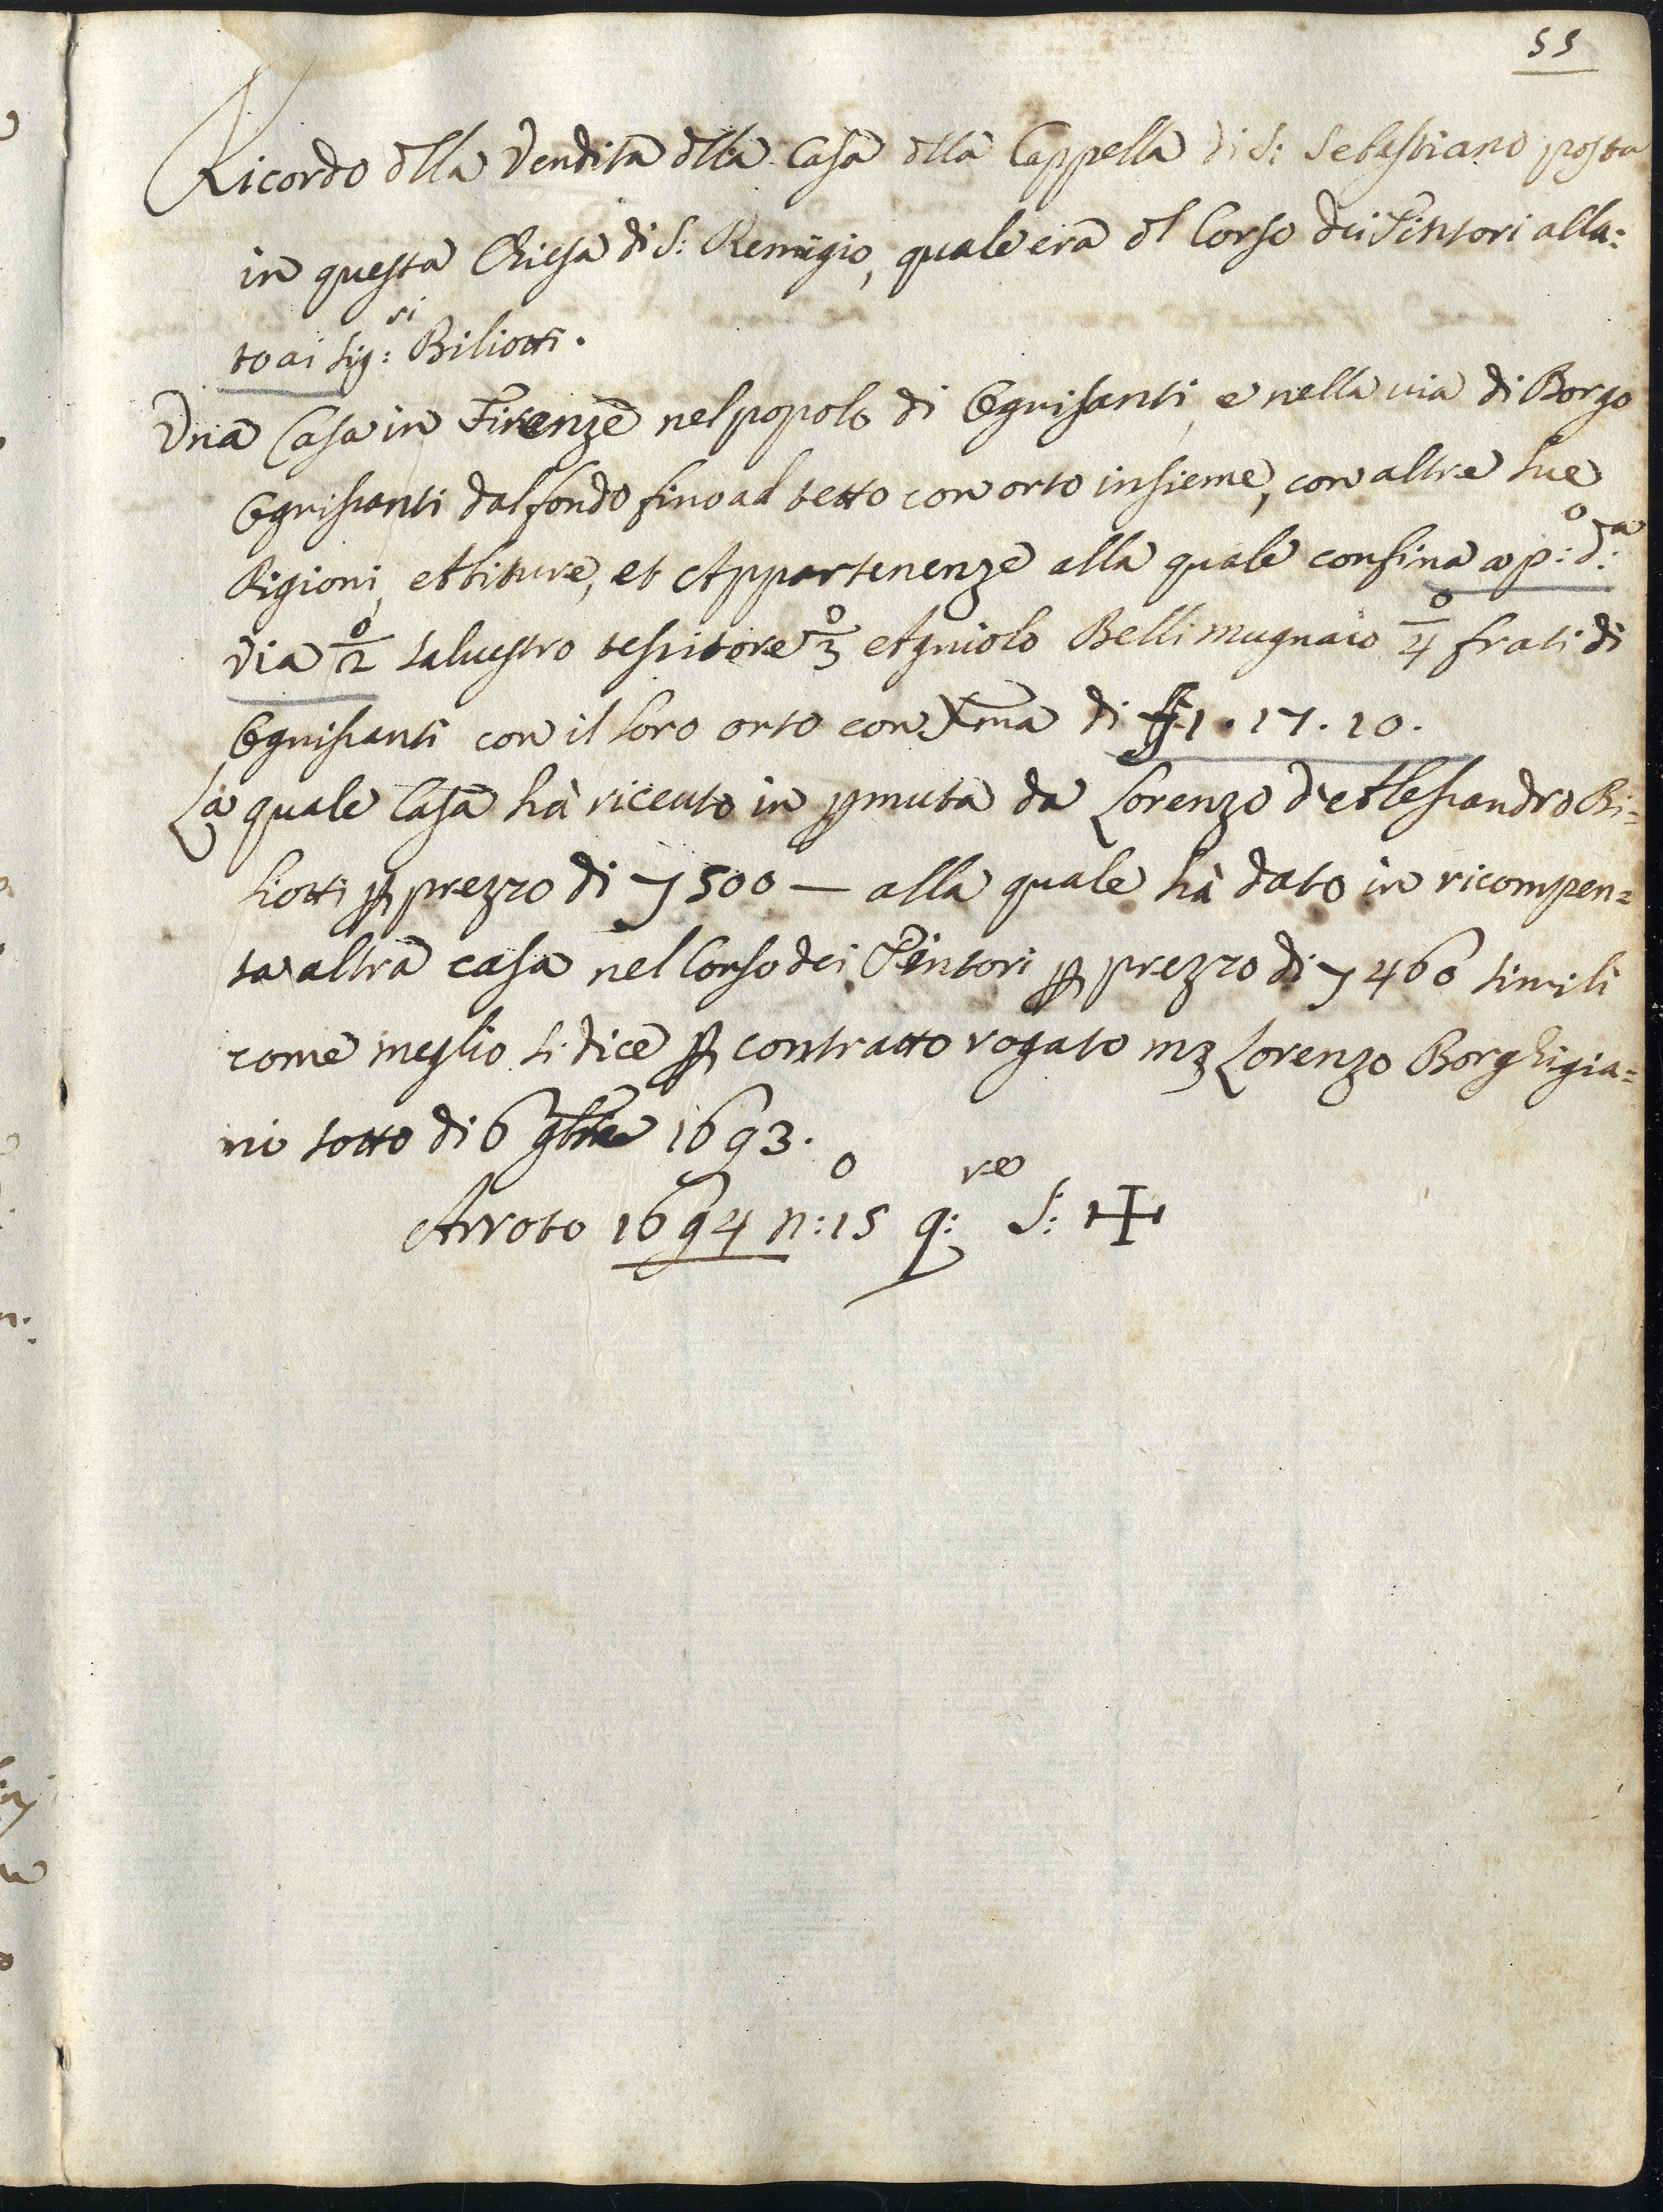 55
Ricordo dlla Vendita dlla Casa dlla Cappella di S: Sebastiano posta
in questa Chiesa di S: Remigio, quale era dl Corso dei Tintori alla=
to ai Sig:ri Biliotti.
Vna Casa in Firenze nel popolo di Ognisanti, e nella uia di Borgo
Ognissanti dal fondo fino al tetto con orto insieme, con altre sue
Rigioni, Abiture, et Appartenenze alla quale confina a p:o d:a
via 2o Saluestro tessitore 3o Agniolo Belli mugnaio 4o frati di
Ognissanti con il loro orto con Xma di f 1. 17. 10.
La quale Casa hà riceuto in pmuta da Lorenzo d'Alessandro Bi=
liotti p prezzo di 7 500 — alla quale hà dato in ricompen=
sa altra casa nel Corso dei Tintori p prezzo di 7 460 simili
come meglio si dice p contratto rogato mz Lorenzo Borghigia=
ni sotto di 6 9bre 1693.
Arroto 1694 n:o 15 q:re S: +